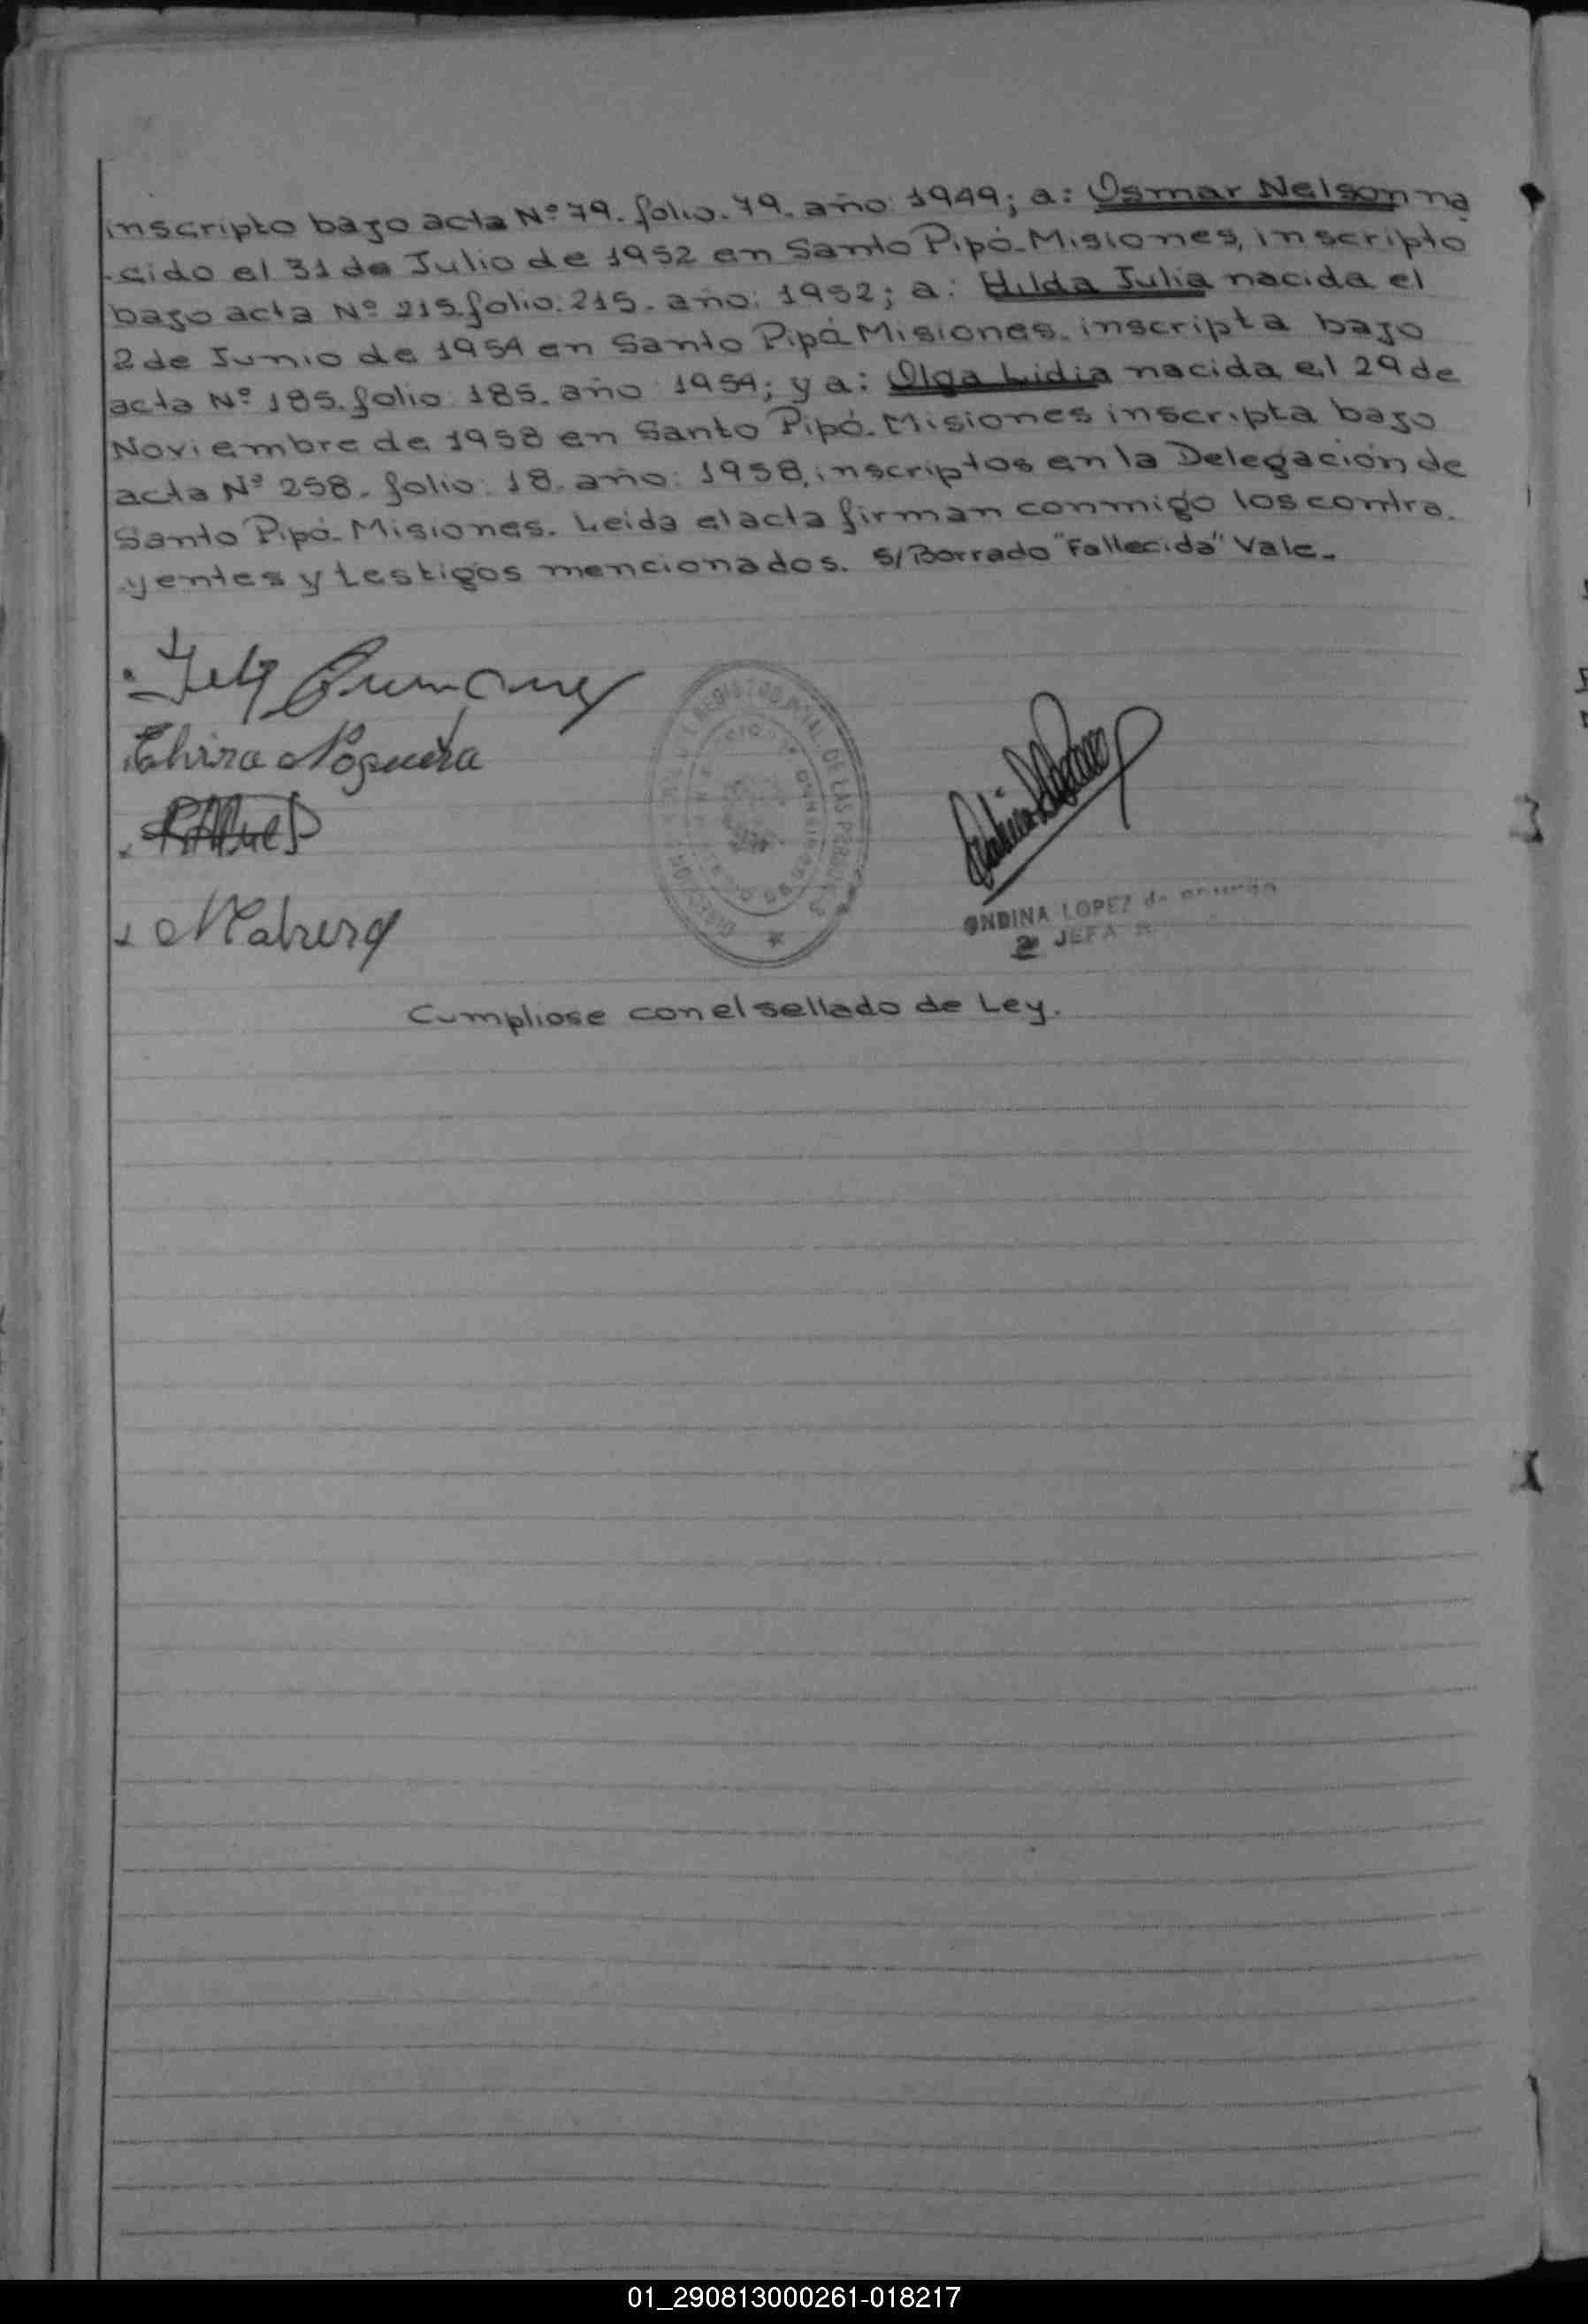 inscripto bajo acta Nº 79. folio. 79. año: 1949; a: Osmar Nelson na
cido el 31 de Julio de 1952 en Santo Pipó-Misiones, inscripto
bajo acta Nº 215. folio: 215. año: 1952; a: Hilda Julia nacida el
2 de Junio de 1954 en Santo Pipó Misiones. inscripta bajo
acta Nº 185. folio: 185. año: 1954; y a: Olga Lidia nacida el 29 de
Noviembre de 1958 en Santo Pipó. Misiones inscripta bajo
acta Nº 258. folio: 18. año: 1958, inscriptos en la Delegación de
Santo Pipó- Misiones. Leida el acta firman conmigo los contra.
yentes y testigos mencionados. S/Borrado "Fallecida" Vale.-
Elvira Noguera
DE LAS PERSONAS
ONDINA LOPEZ de
2ª JEFA
Cumpliose con el sellado de Ley.
01_290813000261-018217